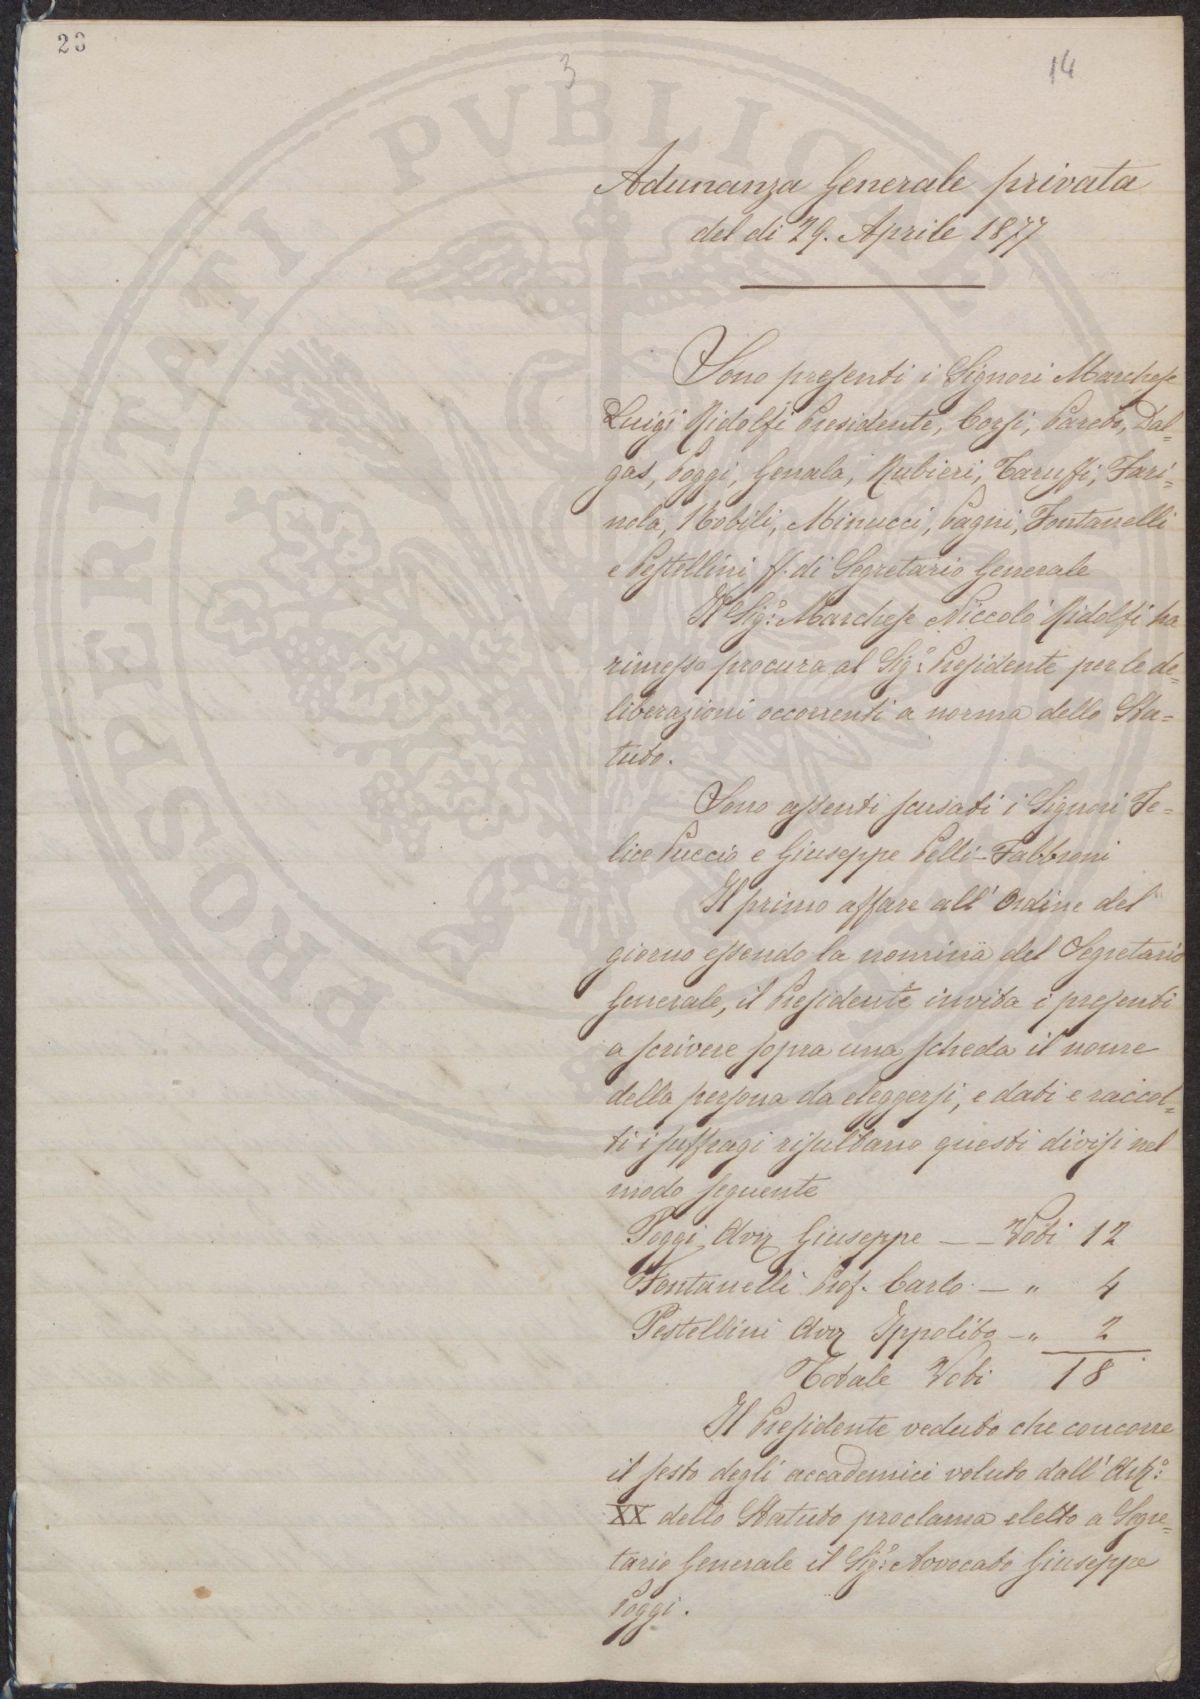 23
3
14
PROSPERITATI PVBLICAE
Adunanza Generale privata
del di 29. Aprile 1877
Sono presenti i Signori Marchese
Luigi Ridolfi Presidente, Corsi, Pareto, Dal=
gas, Poggi, Genala, Rubieri, Taruffi, Fari=
nola, Nobili, Minucci, Pagni, Fontanelli
e Pestellini ff. di Segretario Generale
Il Sig:r Marchese Niccolò Ridolfi ha
rimesso procura al Sig:r Presidente per le de=
liberazioni occorrenti a norma dello Sta=
tuto.
Sono assenti scusati i Signori Fe=
lice Puccio e Giuseppe Pelli-Fabbroni
Il primo affare all' Ordine del
giorno essendo la nomina del Segretario
Generale, il Presidente invita i presenti
a scrivere sopra una scheda il nome
della persona da eleggersi, e dati e raccol=
ti i suffragi risultano questi divisi nel
modo seguente
Poggi Avv Giuseppe — — Voti 12
Fontanelli Prof. Carlo — " 4
Pestellini Avv Ippolito — " 2
Totale Voti 18
Il Presidente veduto che concorre
il sesto degli accademici voluto dall' Art:o
XX dello Statuto proclama eletto a Segre=
tario Generale il Sig:r Avvocato Giuseppe
Poggi.